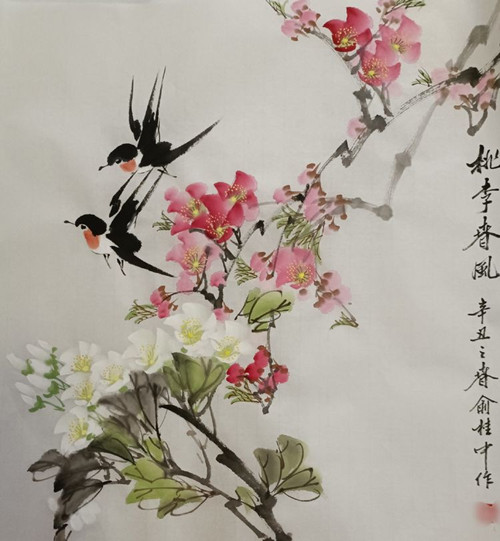 桃李春风
辛丑之春俞桂中作